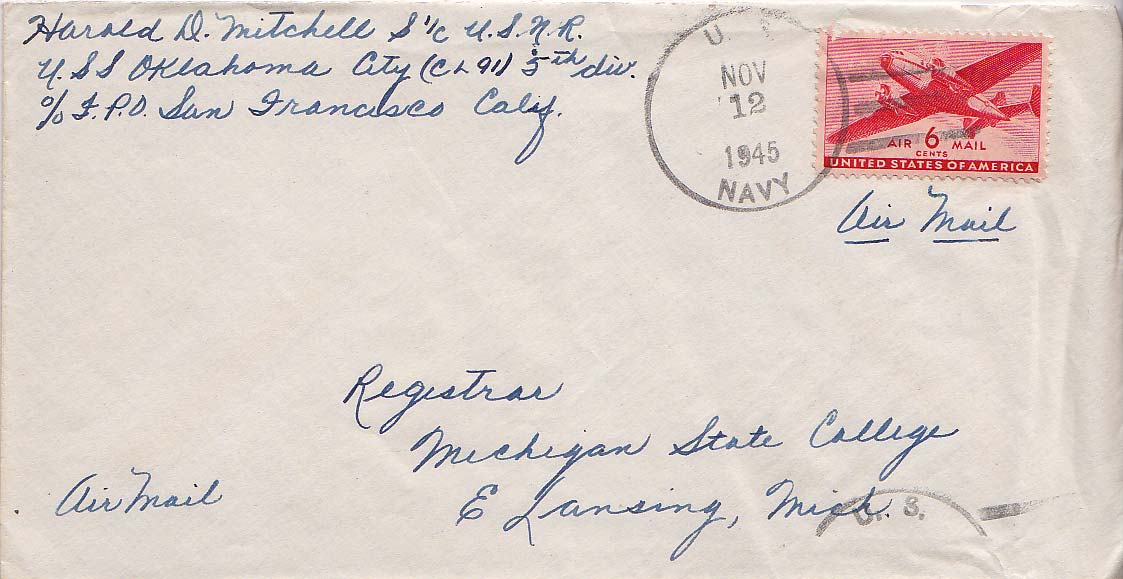 Harold D. Mitchell S 1/c U.S.N.R.
U.S S Oklahoma City (CL 91) 5th div.
c/o F.P.O. San Francisco Calif.
U.
NOV
12
1945
NAVY
AIR 6 MAIL
CENTS
UNITED STATES OF AMERICA
Air Mail
Registrar
Michigan State College
E Lansing, Mich.
Air Mail
U. S.